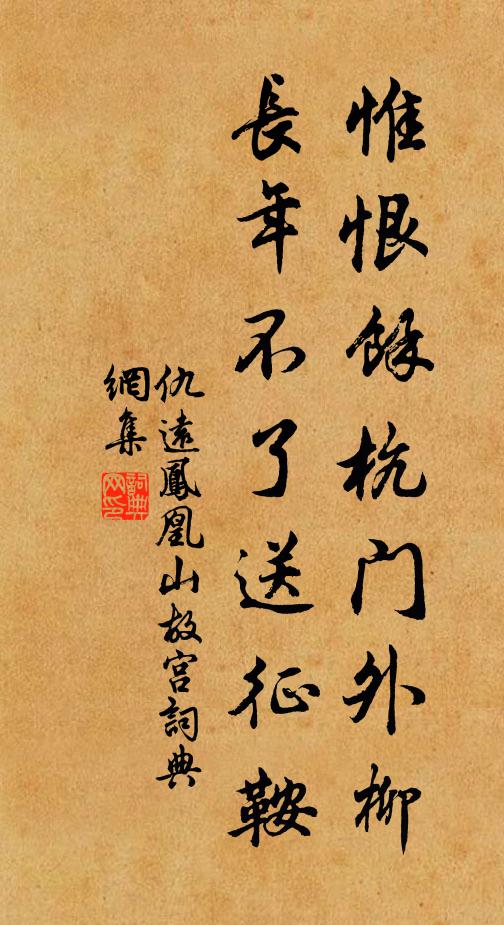 惟恨餘杭門外柳
長年不了送征鞍
仇遠鳳凰山故宮詞典
網集
詞典
网印